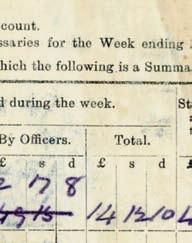 count.
ssaries for the Week ending
hich the following is a Summa
d during the week.
St
By Officers. Total.
£ s d £ s d £
2 17 8
14 12 10